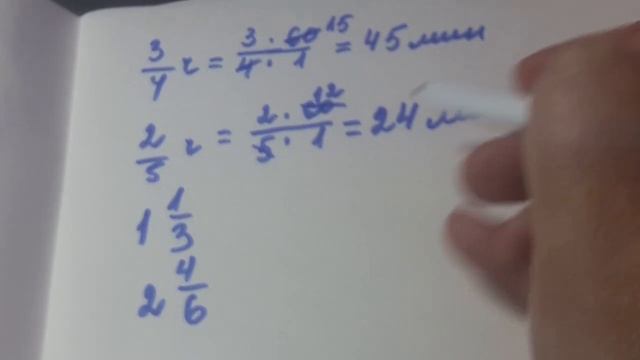 3/4 ч = 3 · 60 15 / 4 · 1 = 45 мин
2/5 ч = 2 · 60 12 / 5 · 1 = 24 м
1 1/3
2 4/6